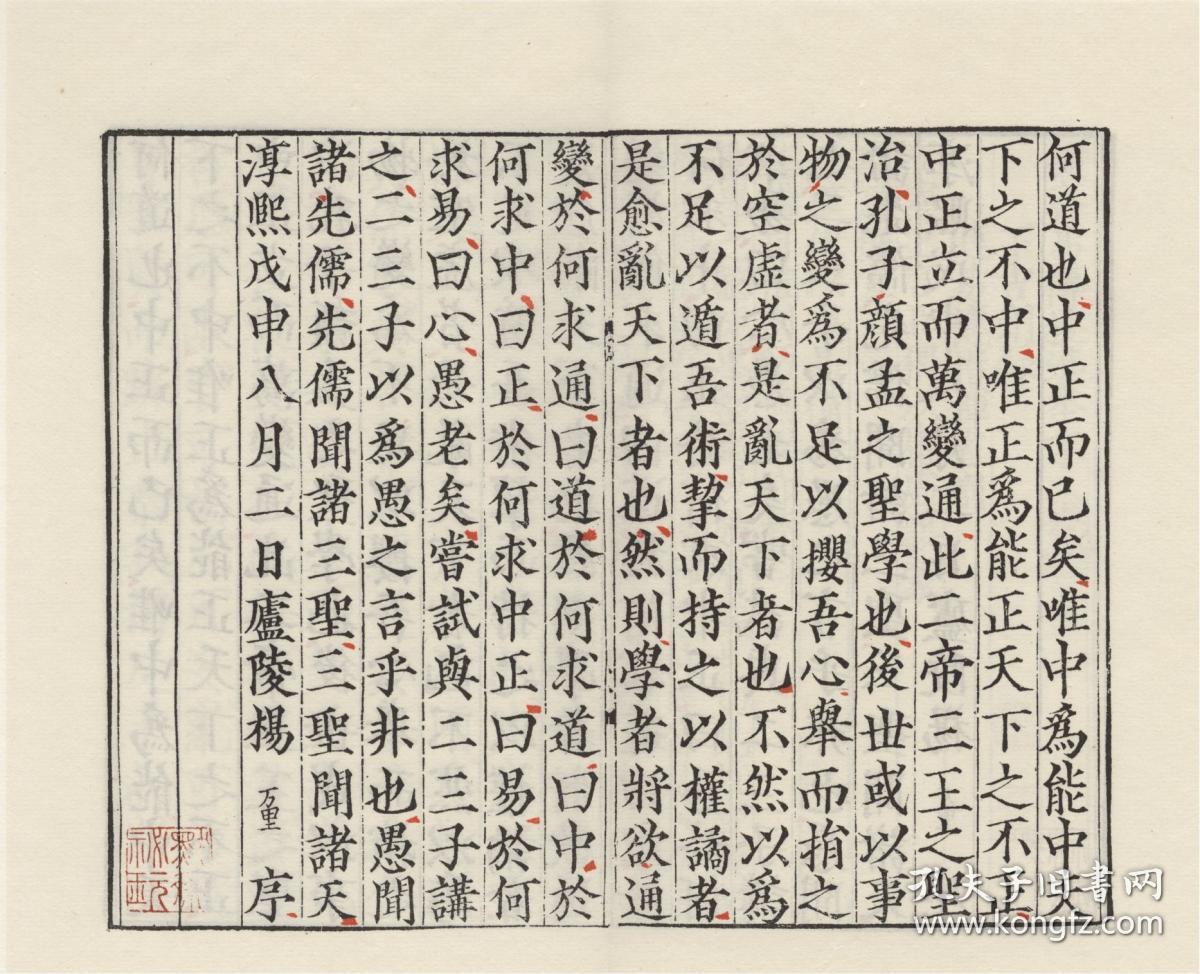 何道也中正而已矣唯中為能中天
下之不中唯正為能正天下之不正
中正立而萬變通此二帝三王之聖
治孔子顔孟之聖學也後世或以事
物之變為不足以攖吾心舉而捐之
於空虛者是亂天下者也不然以為
不足以遁吾術挈而持之以權譎者
是愈亂天下者也然則學者將欲通
變於何求通曰道於何求道曰中於
何求中曰正於何求中正曰易於何
求易曰心愚老矣嘗試與二三子講
之二三子以為愚之言乎非也愚聞
諸先儒先儒聞諸三聖三聖聞諸天
淳熙戊申八月二日廬陵楊万里序
孔夫子旧書网
www.kongfz.com